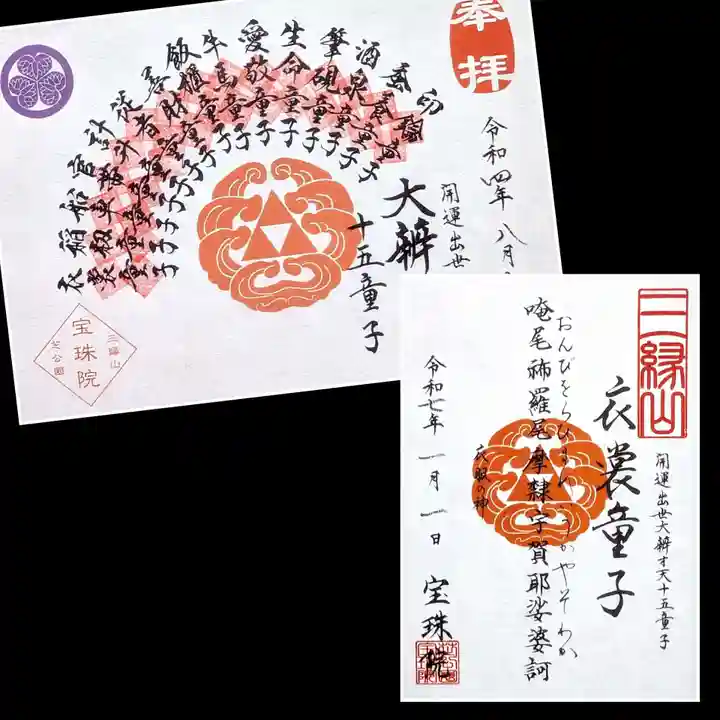 奉拝
令和四年八月
開運出世
大辨
十五童子
印鑰童子
酒泉童子
筆硯童子
生命童子
愛敬童子
牛馬童子
飯櫃童子
衣裳童子
三縁山
宝珠院
芝公園
三縁山
開運出世大辨才天十五童子
衣裳童子
おんびそらびまれいうかやそわか
唵尾秭羅尾摩隸宇賀耶娑婆訶
衣服の神
令和七年一月一日
宝珠院